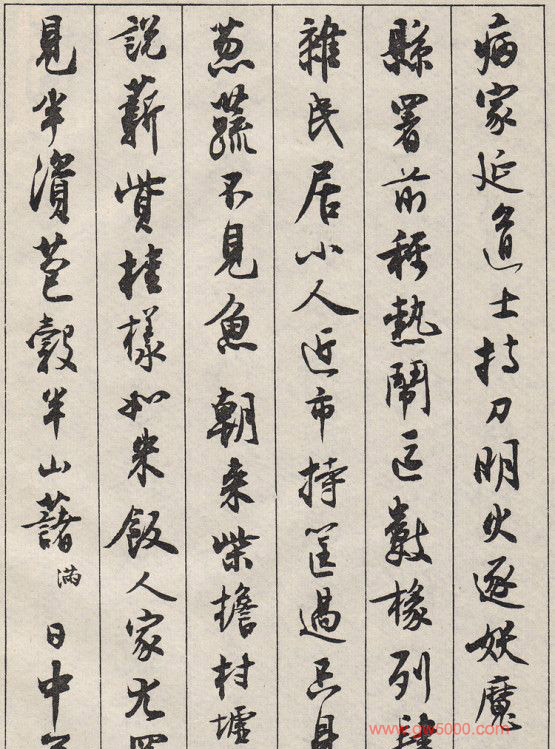 病家延道士持刀明火逐妖魔
縣署前稱熱鬧區數椽列
雜民居小人近市持筐過只見
葱蔬不見魚 朝来柴擔村墟
說薪貴桂樣如米飯人家尤罕
見半資苞穀半山藷 滿 日中
www.gw5000.com